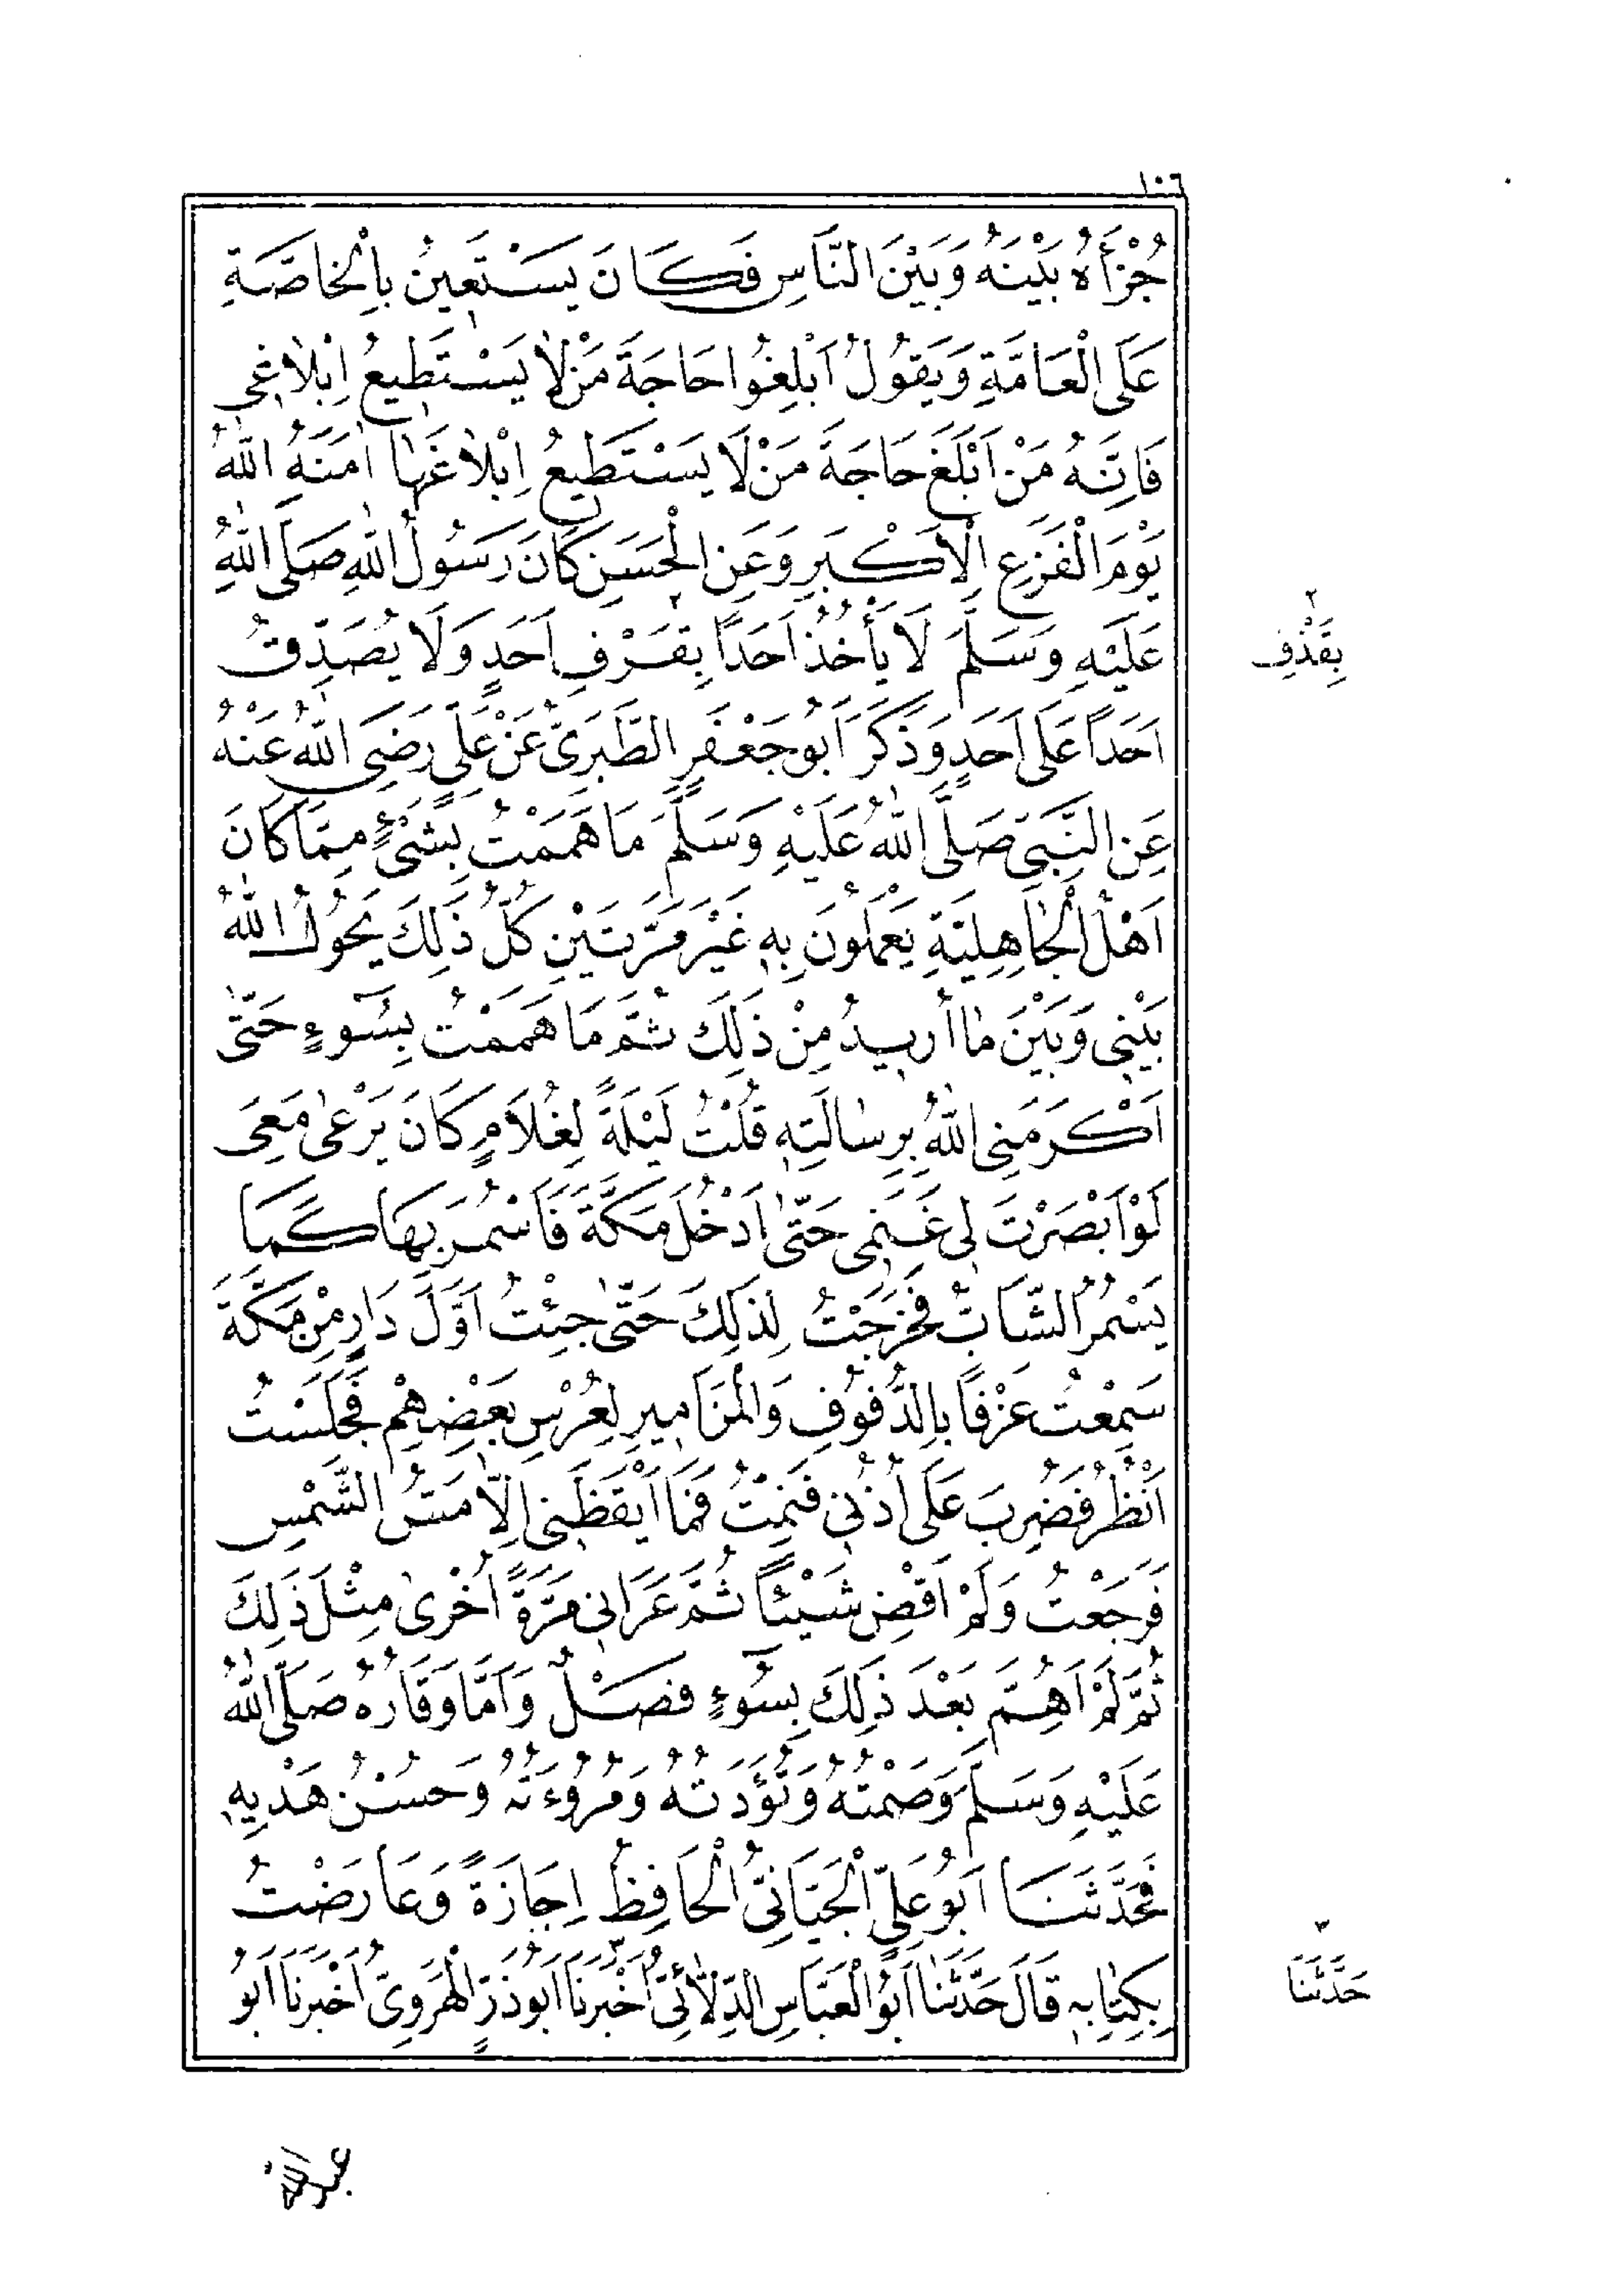 ١٠٦
جُزْأَهُ بَيْنَهُ وَبَيْنَ النَّاسِ فَكَانَ يَسْتَعِينُ بِالْخَاصَّةِ
عَلَى الْعَامَّةِ وَيَقُولُ اَبْلِغُوا حَاجَةَ مَنْ لَا يَسْتَطِيعُ اِبْلَاغِى
فَاِنَّهُ مَنْ اَبْلَغَ حَاجَةَ مَنْ لَا يَسْتَطِيعُ اِبْلَاغَهَا اٰمَنَهُ اللّٰهُ
يَوْمَ الْفَزَعِ الْاَكْبَرِ وَعَنِ الْحَسَنِ كَانَ رَسُولُ اللّٰهِ صَلَّى اللّٰهُ
عَلَيْهِ وَسَلَّمَ لَا يَأْخُذُ اَحَدًا بِقَرْفِ اَحَدٍ وَلَا يُصَدِّقُ
٢
بِقَذْفِ
اَحَدًا عَلَى اَحَدٍ وَذَكَرَ اَبُو جَعْفَرٍ الطَّبَرِىُّ عَنْ عَلِىٍّ رَضِىَ اللّٰهُ عَنْهُ
عَنِ النَّبِىِّ صَلَّى اللّٰهُ عَلَيْهِ وَسَلَّمَ مَا هَمَمْتُ بِشَىْءٍ مِمَّا كَانَ
اَهْلُ الْجَاهِلِيَّةِ يَعْمَلُونَ بِهِ غَيْرَ مَرَّتَيْنِ كُلُّ ذَلِكَ يَحُولُ اللّٰهُ
بَيْنِى وَبَيْنَ مَا اُرِيدُ مِنْ ذَلِكَ ثُمَّ مَا هَمَمْتُ بِسُوٓءٍ حَتّٰى
اَكْرَمَنِى اللّٰهُ بِرِسَالَتِهِ قُلْتُ لَيْلَةً لِغُلَامٍ كَانَ يَرْعٰى مَعِىَ
لَوْ اَبْصَرْتَ لِى غَنَمِى حَتّٰى اَدْخُلَ مَكَّةَ فَاَسْمُرَ بِهَا كَمَا
يَسْمُرُ الشَّابُّ فَخَرَجْتُ لِذَلِكَ حَتّٰى جِئْتُ اَوَّلَ دَارٍ مِنْ مَكَّةَ
سَمِعْتُ عَزْفًا بِالدُّفُوفِ وَالْمَزَامِيرِ لِعُرْسِ بَعْضِهِمْ فَجَلَسْتُ
اَنْظُرُ فَضُرِبَ عَلَى اُذُنِى فَنِمْتُ فَمَا اَيْقَظَنِى اِلَّا مَسُّ الشَّمْسِ
فَرَجَعْتُ وَلَمْ اَقْضِ شَيْئًا ثُمَّ عَرَانِى مَرَّةً اُخْرٰى مِثْلَ ذَلِكَ
ثُمَّ لَمْ اَهُمَّ بَعْدَ ذَلِكَ بِسُوٓءٍ فَصْلٌ وَاَمَّا وَقَارُهُ صَلَّى اللّٰهُ
عَلَيْهِ وَسَلَّمَ وَصَمْتُهُ وَتُؤَدَتُهُ وَمُرُوءَتُهُ وَحُسْنُ هَدْيِهِ
فَحَدَّثَنَا اَبُو عَلِىٍّ الْجَيَّانِىُّ الْحَافِظُ اِجَازَةً وَعَارَضْتُ
بِكِتَابِهِ قَالَ حَدَّثَنَا اَبُو الْعَبَّاسِ الدِّلَائِىُّ اَخْبَرَنَا اَبُو ذَرٍّ الْهَرَوِىُّ اَخْبَرَنَا اَبُو
٣
حَدَّثَنَا
عبد الله